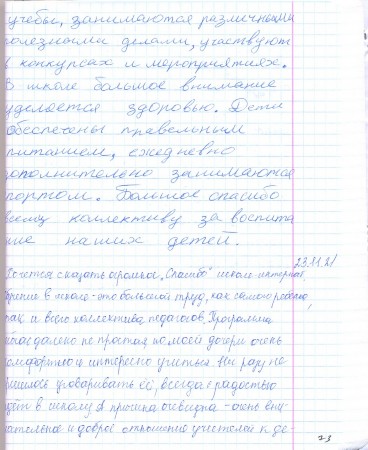 учебы, занимаются различными
полезными делами, участвуют
в конкурсах и мероприятиях.
В школе большое внимание
уделяется здоровью. Дети
обеспечены правельным
питанием, ежедневно
дополнительно занимаются
спортом. Большое спасибо
всему коллективу за воспита
ние наших детей.
23.11.21
Хочется сказать огромное "Спасибо" школе-интернат,
в школе - это большой труд, как самого ребенка,
так и всего коллектива педагогов. Программа
далеко не простая, но моей дочери очень
комфортно и интересно учиться. Ни разу не
пришлось уговаривать её, всегда с радостью
идёт в школу. А причина очевидна - очень вни-
мательное и доброе отношение учителей к де-
73